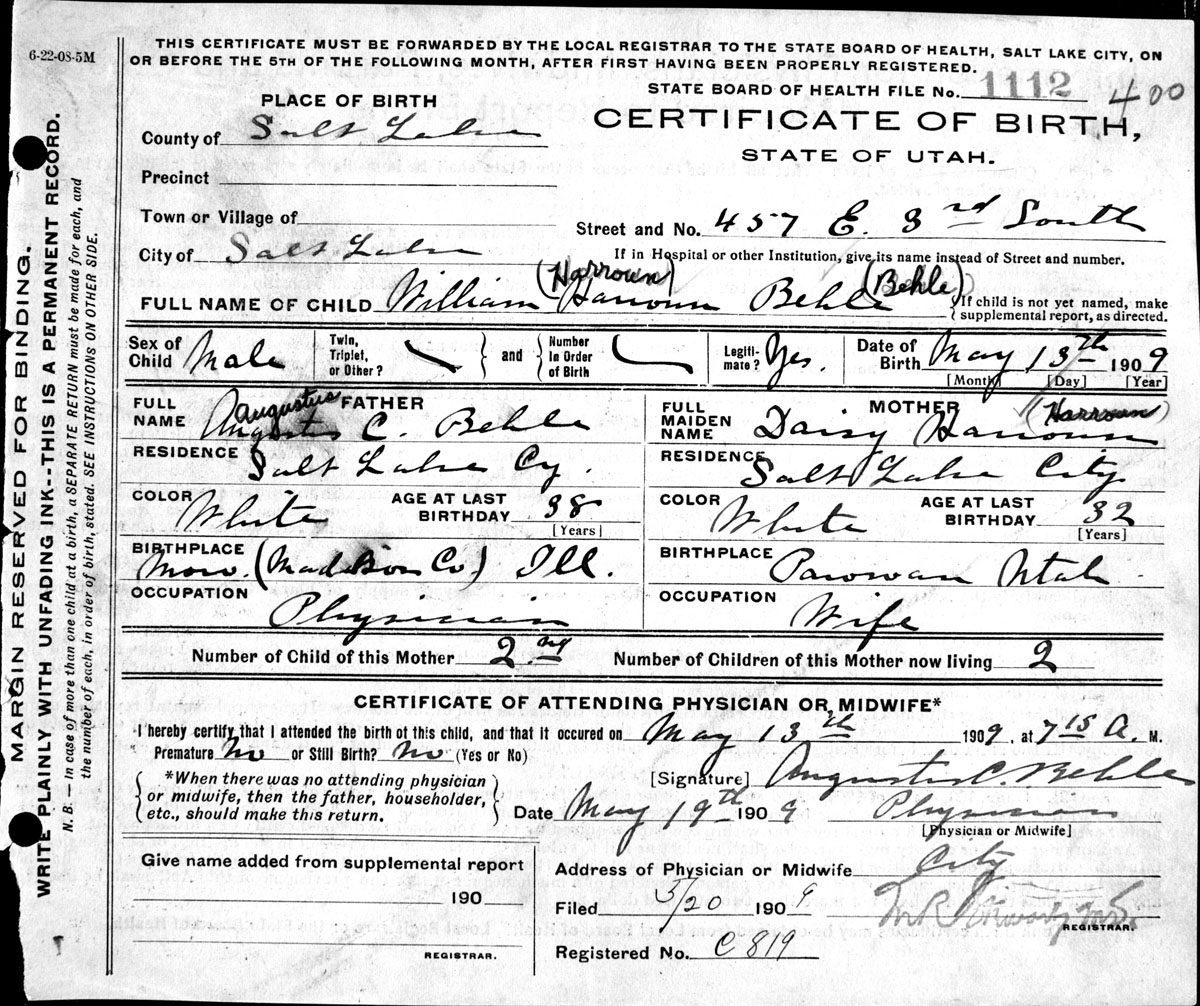 6-22-08-5M
THIS CERTIFICATE MUST BE FORWARDED BY THE LOCAL REGISTRAR TO THE STATE BOARD OF HEALTH, SALT LAKE CITY, ON
OR BEFORE THE 5TH OF THE FOLLOWING MONTH, AFTER FIRST HAVING BEEN PROPERLY REGISTERED.
STATE BOARD OF HEALTH FILE No. 1112 400
PLACE OF BIRTH
CERTIFICATE OF BIRTH,
STATE OF UTAH.
County of Salt Lake
Precinct
Town or Village of
Street and No. 457 E. 3rd South
City of Salt Lake
If in Hospital or other Institution, give its name instead of Street and number.
(Harroun) (Behle)
FULL NAME OF CHILD William Harroun Behle
If child is not yet named, make
supplemental report, as directed.
Sex of Child Male Twin, Triplet, or Other? and Number In Order of Birth Legiti-mate? Yes. Date of Birth May 13th 1909
[Month] [Day] [Year]
FATHER
FULL NAME Augustus Augustus C. Behle
RESIDENCE Salt Lake Cy.
COLOR White AGE AT LAST BIRTHDAY 38
[Years]
BIRTHPLACE (Madison Co) Ill.
OCCUPATION Physician
MOTHER (Harroun)
FULL MAIDEN NAME Daisy Harroun
RESIDENCE Salt Lake City
COLOR White AGE AT LAST BIRTHDAY 32
[Years]
BIRTHPLACE Parowan Utah
OCCUPATION Wife
Number of Child of this Mother 2nd Number of Children of this Mother now living 2
CERTIFICATE OF ATTENDING PHYSICIAN OR MIDWIFE*
I hereby certify that I attended the birth of this child, and that it occured on May 13th 1909, at 7 15 A. M.
Premature No or Still Birth? No (Yes or No)
*When there was no attending physician
or midwife, then the father, householder,
etc., should make this return.
[Signature] Augustus C. Behle
Date May 19th 1909 Physician
[Physician or Midwife]
Give name added from supplemental report
190
REGISTRAR.
Address of Physician or Midwife City
Filed 5/20 1909
REGISTRAR.
Registered No. C 819
MARGIN RESERVED FOR BINDING.
WRITE PLAINLY WITH UNFADING INK--THIS IS A PERMANENT RECORD.
N. B. — In case of more than one child at a birth, a SEPARATE RETURN must be made for each, and
the number of each, in order of birth, stated. SEE INSTRUCTIONS ON OTHER SIDE.